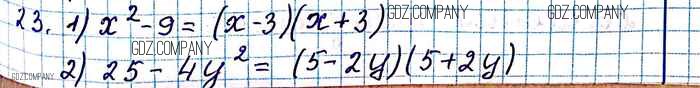 23. 1) x² - 9 = (x - 3)(x + 3) GDZ.COMPANY GDZ.COMPANY
GDZ.COMPANY
GDZ.COMPANY 2) 25 - 4y² = (5 - 2y)(5 + 2y)